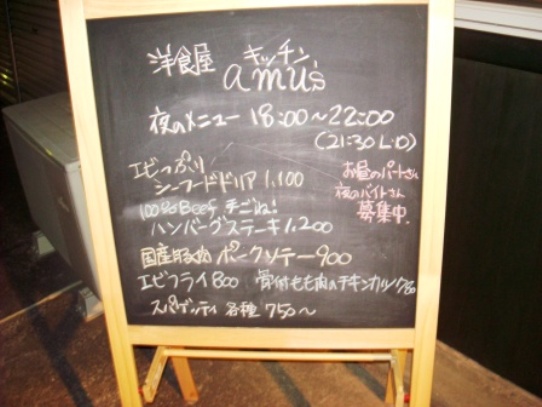 洋食屋 キッチン
amu's
夜のメニュー 18:00〜22:00
(21:30 L・O)
エビたっぷり
シーフードドリア 1,100
100%Beef 手ごね!
ハンバーグステーキ 1,200
国産豚肉 ポークソテー 900
エビフライ 800 骨付もも肉のチキンカリー 780
スパゲッティ 各種 750〜
お昼のパートさん
夜のバイトさん
募集中.